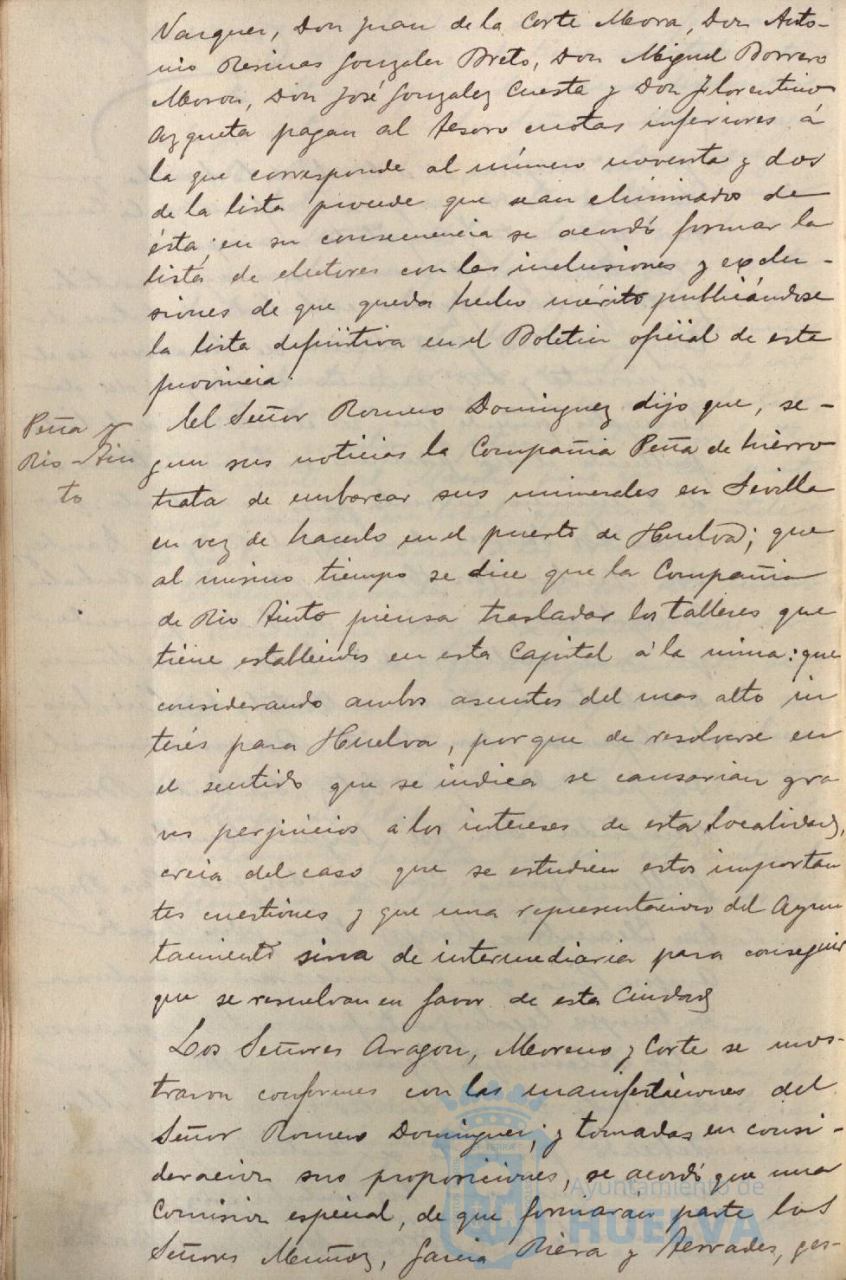 Vazquez, Don Juan de la Corte Mora, Don Anto-
nio Resinas Gonzalez Prieto, Don Miguel Borrero
Moron, Don José Gonzalez Cuesta y Don Florentino
Azqueta pagan al Tesoro cuotas inferiores á
la que corresponde al número noventa y dos
de la lista procede que sean eliminados de
ésta: en su consecuencia se acordó formar la
lista de electores con las inclusiones y exclu-
siones de que queda hecho mérito publicándose
la lista definitiva en el Boletin oficial de esta
provincia.
Peña y
Rio-Tin
to
El Señor Romero Dominguez dijo que, se-
gun sus noticias la Compañia Peña de hierro
trata de embarcar sus minerales en Sevilla
en vez de hacerlo en el puerto de Huelva; que
al mismo tiempo se dice que la Compañia
de Rio Tinto piensa trasladar los talleres que
tiene establecidos en esta Capital á la mina: que
considerando ambos asuntos del mas alto in
terés para Huelva, porque de resolverse en
el sentido que se indica se causarian gra
ves perjuicios á los intereses de esta localidad,
creia del caso que se estudien estos importan
tes cuestiones y que una representacion del Ayun
tamiento sirva de intermediaria para conseguir
que se resuelvan en favor de esta Ciudad
Los Señores Aragon, Moreno y Corte se mos-
traron conformes con las manifestaciones del
Señor Romero Dominguez; y tomadas en consi-
deracion sus proposiciones, se acordó que una
Comision especial, de que formaran parte los
Señores Muñoz, Garcia Riera y Terrades, ges-
Ayuntamiento de
HUELVA